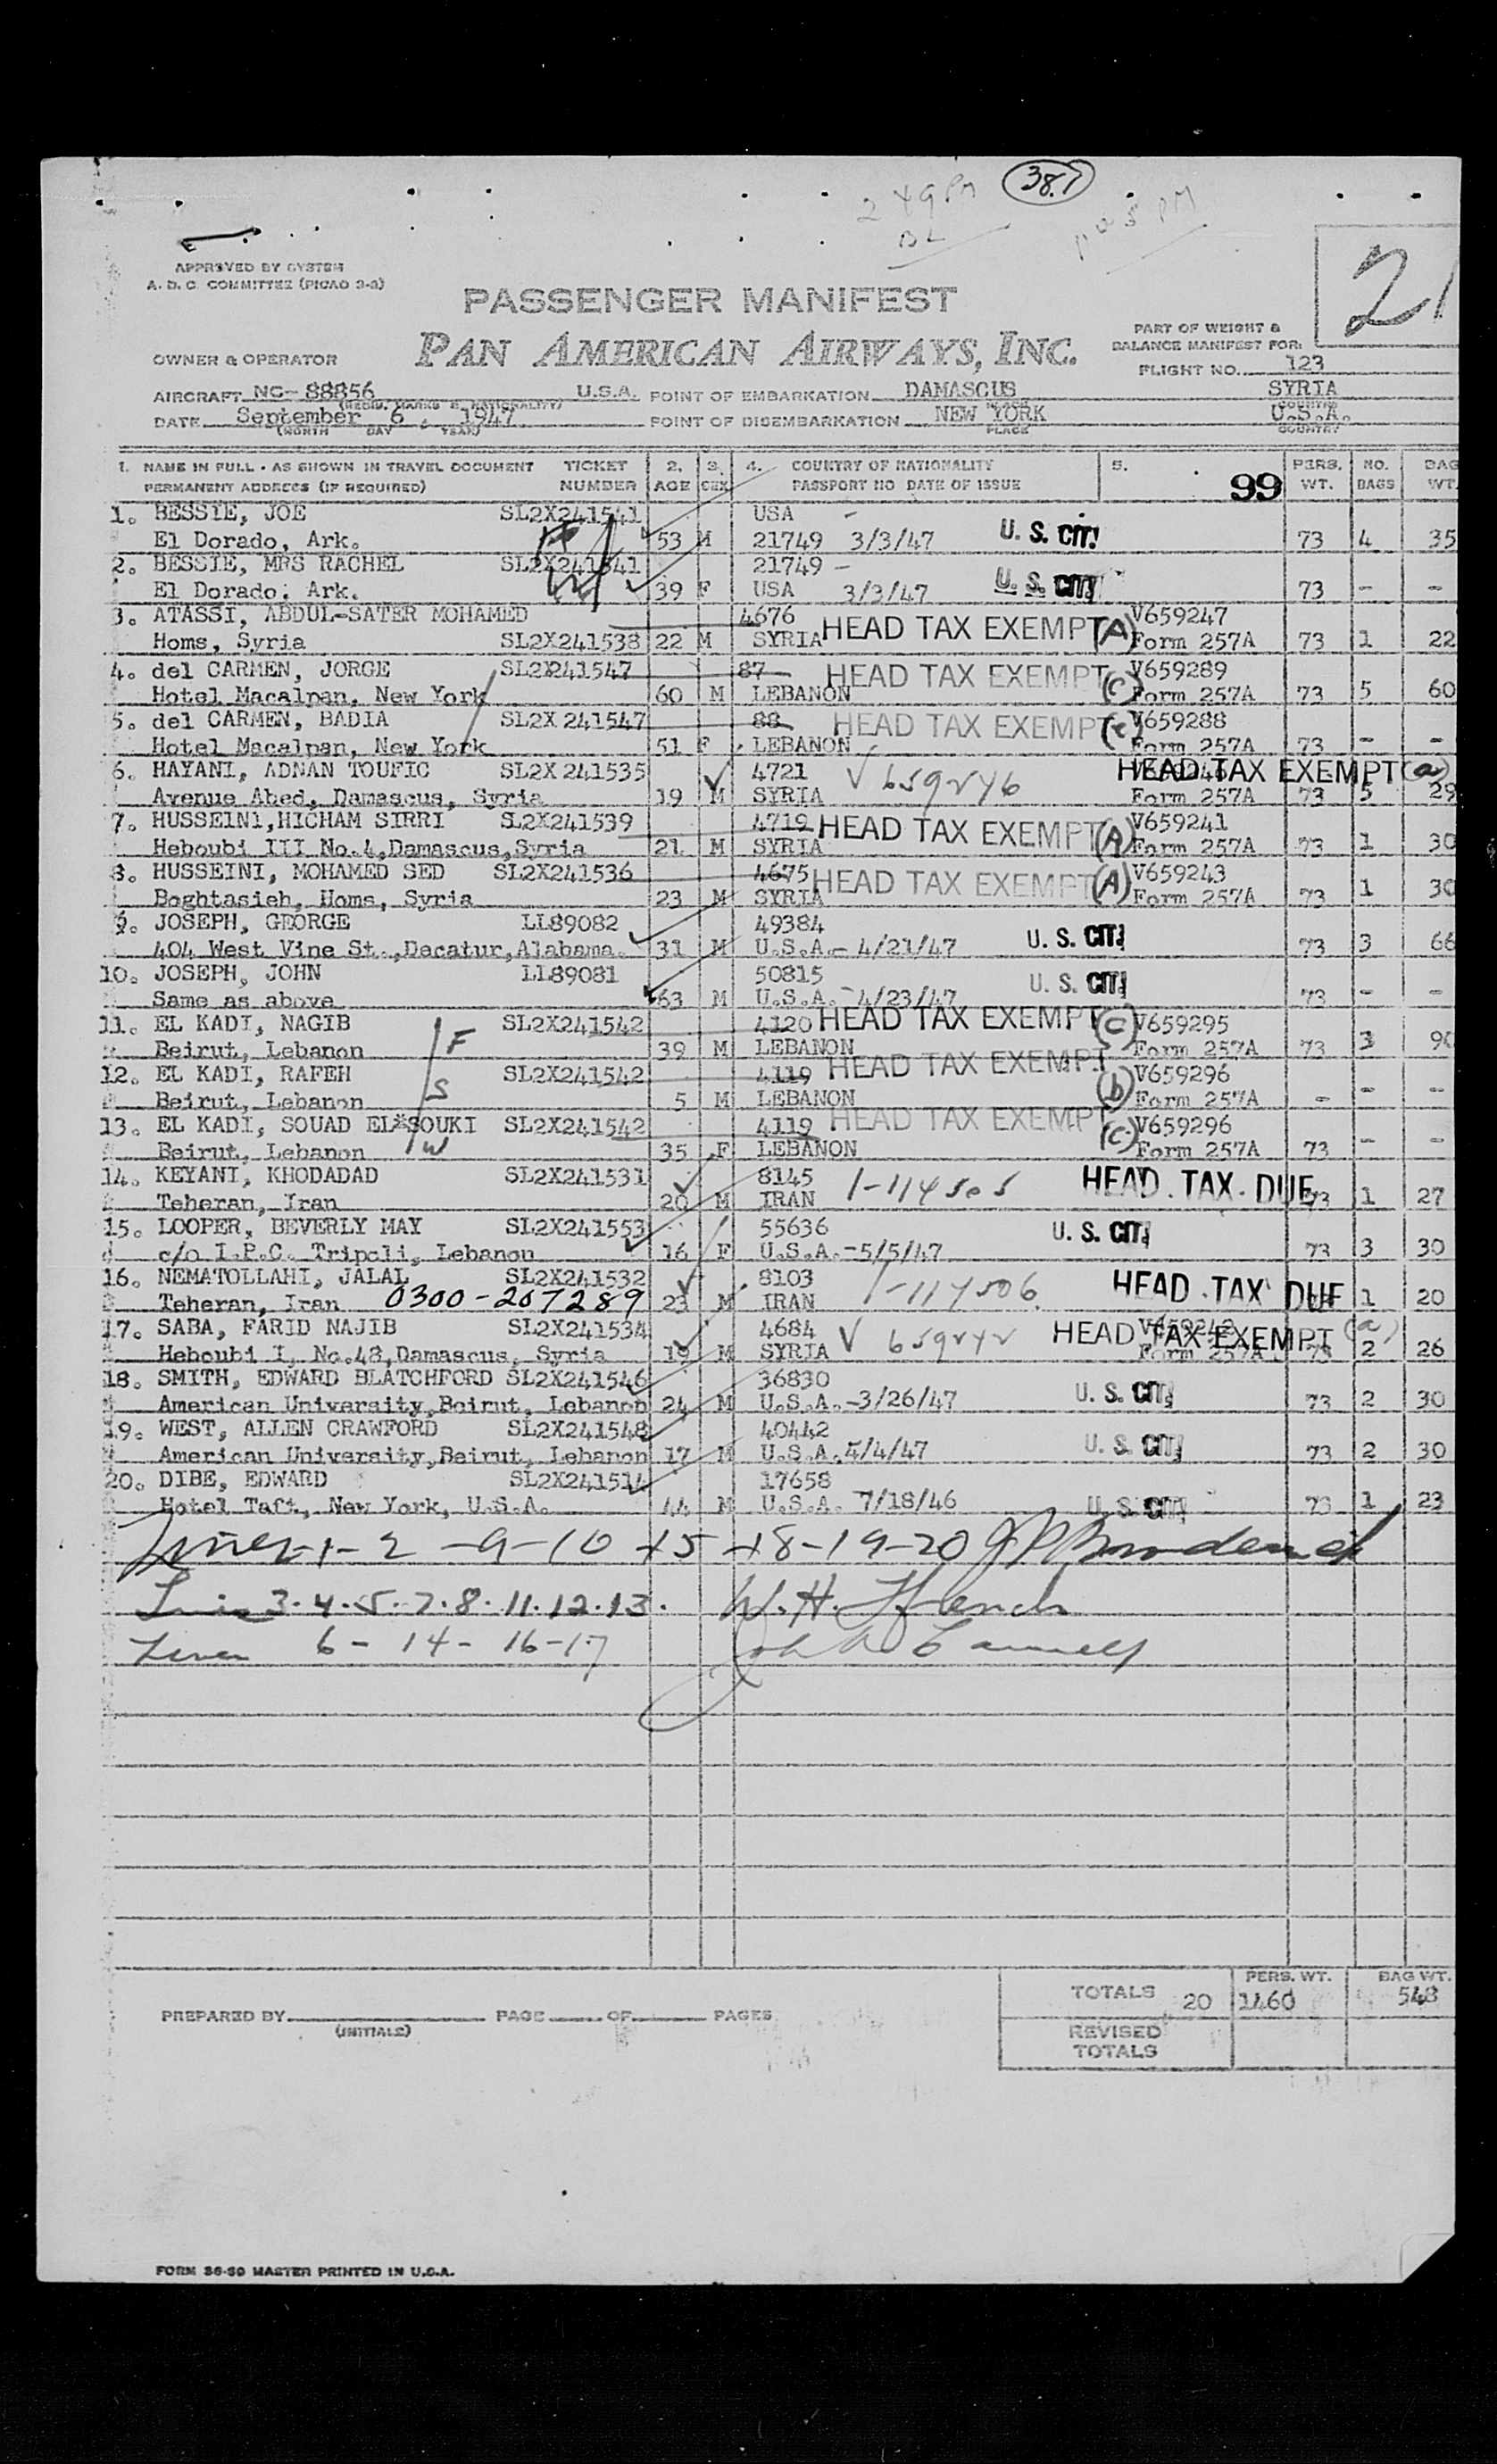 38.1
2 49 PM
21
APPROVED BY SYSTEM
A. D. C. COMMITTEE (PICAO 2-2)
PASSENGER MANIFEST
PAN AMERICAN AIRWAYS, INC.
PART OF WEIGHT &
BALANCE MANIFEST FOR:
OWNER & OPERATOR
FLIGHT NO. 123
AIRCRAFT NC-88856 U.S.A. POINT OF EMBARKATION DAMASCUS SYRIA
DATE September 6, 1947 POINT OF DISEMBARKATION NEW YORK U.S.A.
(MONTH DAY YEAR) PLACE COUNTRY
1. NAME IN FULL - AS SHOWN IN TRAVEL DOCUMENT TICKET 2. 3. 4. COUNTRY OF NATIONALITY 5. PERS. NO. BAG
PERMANENT ADDRESS (IF REQUIRED) NUMBER AGE SEX PASSPORT NO DATE OF ISSUE 99 WT. BAGS WT.
1. BESSIE, JOE SL2X241541 USA
El Dorado, Ark. 53 M 21749 3/3/47 U. S. CIT. 73 4 35
2. BESSIE, MRS RACHEL SL2X241541 21749 -
El Dorado, Ark. 39 F USA 3/3/47 U. S. CIT. 73 - -
3. ATASSI, ABDUL-SATER MOHAMED 4676 HEAD TAX EXEMPT (A) V659247
Homs, Syria SL2X241538 22 M SYRIA Form 257A 73 1 22
4. del CARMEN, JORGE SL2X241547 87 HEAD TAX EXEMPT (c) V659289
Hotel Macalpan, New York 60 M LEBANON Form 257A 73 5 60
5. del CARMEN, BADIA SL2X241547 88 HEAD TAX EXEMPT (c) V659288
Hotel Macalpan, New York 51 F LEBANON Form 257A 73 - -
6. HAYANI, ADNAN TOUFIC SL2X241535 4721 V 659246 HEAD TAX EXEMPT (a)
Avenue Abed, Damascus, Syria 19 M SYRIA Form 257A 73 5 29
7. HUSSEINI,HICHAM SIRRI SL2X241539 4719 HEAD TAX EXEMPT (A) V659241
Heboubi III No.4,Damascus,Syria 21 M SYRIA Form 257A 73 1 30
8. HUSSEINI, MOHAMED SED SL2X241536 4675 HEAD TAX EXEMPT (A) V659243
Boghtasieh, Homs, Syria 23 M SYRIA Form 257A 73 1 30
9. JOSEPH, GEORGE LL89082 49384
404 West Vine St.,Decatur,Alabama. 31 M U.S.A.- 4/21/47 U. S. CIT. 73 3 66
10. JOSEPH, JOHN LL89081 50815
Same as above 63 M U.S.A. - 4/23/47 U. S. CIT. 73 - -
11. EL KADI, NAGIB F SL2X241542 4120 HEAD TAX EXEMPT (c) V659295
Beirut, Lebanon 39 M LEBANON Form 257A 73 3 90
12. EL KADI, RAFEH S SL2X241542 4119 HEAD TAX EXEMPT (b) V659296
Beirut, Lebanon 5 M LEBANON Form 257A - - -
13. EL KADI, SOUAD EL SOUKI SL2X241542 4119 HEAD TAX EXEMPT (c) V659296
Beirut, Lebanon W 35 F LEBANON Form 257A 73 - -
14. KEYANI, KHODADAD SL2X241531 8145 1-114505 HEAD TAX DUE
Teheran, Iran 20 M IRAN 73 1 27
15. LOOPER, BEVERLY MAY SL2X241553 55636 U. S. CIT.
c/o I.P.C. Tripoli, Lebanon 16 F U.S.A.-5/5/47 73 3 30
16. NEMATOLLAHI, JALAL SL2X241532 8103 1-114506 HEAD TAX DUE
Teheran, Iran 0300-207289 23 M IRAN 1 20
17. SABA, FARID NAJIB SL2X241534 4684 V 659242 HEAD TAX EXEMPT (a) V659242
Heboubi I, No.48,Damascus, Syria 19 M SYRIA Form 257A 73 2 26
18. SMITH, EDWARD BLATCHFORD SL2X241546 36830
American University,Beirut, Lebanon 24 M U.S.A.-3/26/47 U. S. CIT. 73 2 30
19. WEST, ALLEN CRAWFORD SL2X241548 40442
American University,Beirut, Lebanon 17 M U.S.A. 5/4/47 U. S. CIT. 73 2 30
20. DIBE, EDWARD SL2X241514 17658
Hotel Taft, New York, U.S.A. 44 M U.S.A. 7/18/46 U. S. CIT. 73 1 23
Lines-1-2-9-10-15-18-19-20
Lines 3.4.5.7.8.11.12.13. W. H. French
Lines 6-14-16-17
TOTALS 20 PERS. WT. 1460 BAG WT. 548
PREPARED BY (INITIALS) PAGE OF PAGES
REVISED
TOTALS
FORM 36-50 MASTER PRINTED IN U.S.A.